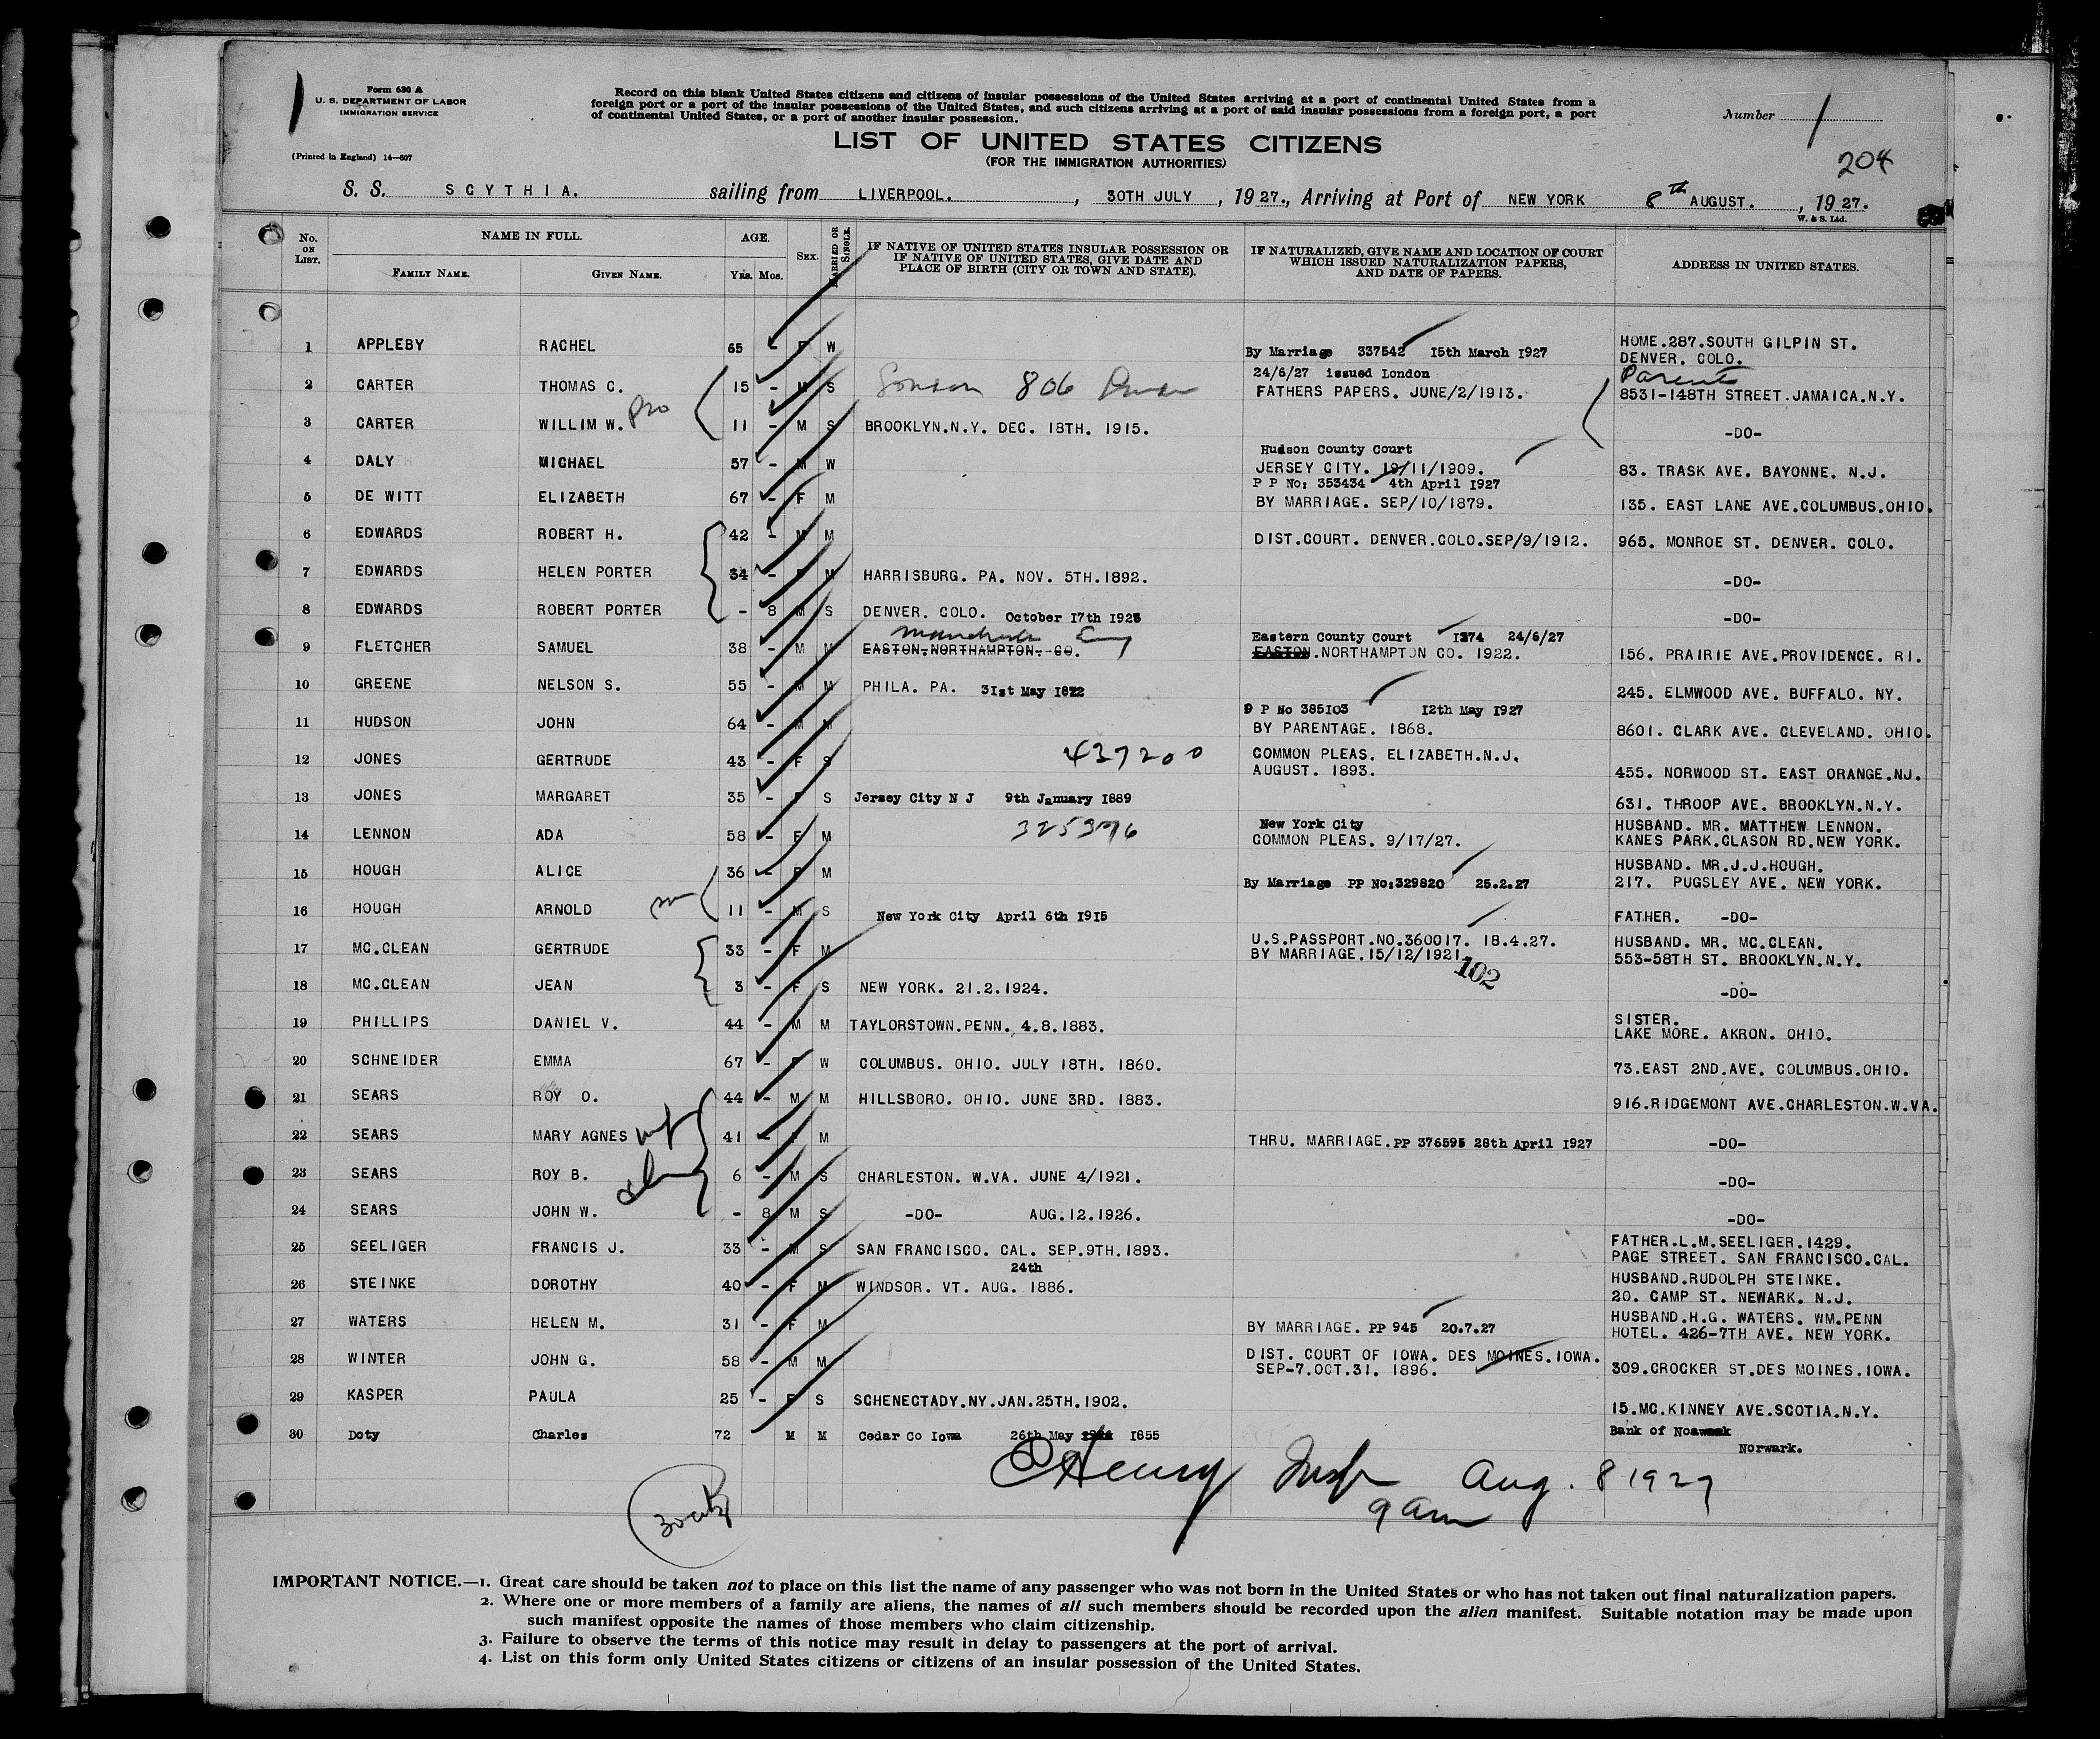 Form 630 A
U. S. DEPARTMENT OF LABOR
IMMIGRATION SERVICE
(Printed in England) 14—607
Record on this blank United States citizens and citizens of insular possessions of the United States arriving at a port of continental United States from a
foreign port or a port of the insular possessions of the United States, and such citizens arriving at a port of said insular possessions from a foreign port, a port
of continental United States, or a port of another insular possession.
Number 1
LIST OF UNITED STATES CITIZENS
(FOR THE IMMIGRATION AUTHORITIES)
204
S. S. SCYTHIA. sailing from LIVERPOOL. , 30TH JULY , 1927., Arriving at Port of NEW YORK 8th AUGUST. , 1927.
W. & S. Ltd.
No. ON LIST. NAME IN FULL. FAMILY NAME. GIVEN NAME. AGE. YRS. MOS. SEX. MARRIED OR SINGLE. IF NATIVE OF UNITED STATES INSULAR POSSESSION OR IF NATIVE OF UNITED STATES, GIVE DATE AND PLACE OF BIRTH (CITY OR TOWN AND STATE). IF NATURALIZED, GIVE NAME AND LOCATION OF COURT WHICH ISSUED NATURALIZATION PAPERS, AND DATE OF PAPERS. ADDRESS IN UNITED STATES.
1 APPLEBY RACHEL 65 - F W By Marriage 337542 15th March 1927 HOME.287.SOUTH GILPIN ST. DENVER. COLO.
2 CARTER THOMAS C. 15 - M S 806 24/6/27 issued London FATHERS PAPERS. JUNE/2/1913. Parents 8531-148TH STREET.JAMAICA.N.Y.
3 CARTER WILLIM W. 11 - M S BROOKLYN.N.Y. DEC. 18TH. 1915. -DO-
4 DALY MICHAEL 57 - M W Hudson County Court JERSEY CITY. 19/11/1909. 83. TRASK AVE. BAYONNE. N.J.
5 DE WITT ELIZABETH 67 - F M P P No: 353434 4th April 1927 BY MARRIAGE. SEP/10/1879. 135. EAST LANE AVE.COLUMBUS.OHIO.
6 EDWARDS ROBERT H. 42 - M M DIST.COURT. DENVER.COLO.SEP/9/1912. 965. MONROE ST. DENVER. COLO.
7 EDWARDS HELEN PORTER 34 - F M HARRISBURG. PA. NOV. 5TH.1892. -DO-
8 EDWARDS ROBERT PORTER - 8 M S DENVER. COLO. October 17th 1925 -DO-
9 FLETCHER SAMUEL 38 - M M EASTON.NORTHAMPTON. CO. Eastern County Court 1374 24/6/27 EASTON.NORTHAMPTON CO. 1922. 156. PRAIRIE AVE.PROVIDENCE. RI.
10 GREENE NELSON S. 55 - M M PHILA. PA. 31st May 1872 245. ELMWOOD AVE. BUFFALO. NY.
11 HUDSON JOHN 64 - M M P P No 385103 12th May 1927 BY PARENTAGE. 1868. 8601. CLARK AVE. CLEVELAND. OHIO.
12 JONES GERTRUDE 43 - F S 437200 COMMON PLEAS. ELIZABETH.N.J. AUGUST. 1893. 455. NORWOOD ST. EAST ORANGE.NJ.
13 JONES MARGARET 35 - F S Jersey City N J 9th January 1889 631. THROOP AVE. BROOKLYN.N.Y.
14 LENNON ADA 58 - F M New York City COMMON PLEAS. 9/17/27. HUSBAND. MR. MATTHEW LENNON. KANES PARK.CLASON RD.NEW YORK.
15 HOUGH ALICE 36 - F M By Marriage PP No:329820 25.2.27 HUSBAND. MR.J.J.HOUGH. 217. PUGSLEY AVE. NEW YORK.
16 HOUGH ARNOLD 11 - M S New York City April 6th 1915 FATHER. -DO-
17 MC.CLEAN GERTRUDE 33 - F M U.S.PASSPORT.NO.360017. 18.4.27. BY MARRIAGE.15/12/1921. 102 HUSBAND. MR. MC.CLEAN. 553-58TH ST. BROOKLYN.N.Y.
18 MC.CLEAN JEAN 3 - F S NEW YORK. 21.2.1924. -DO-
19 PHILLIPS DANIEL V. 44 - M M TAYLORSTOWN.PENN. 4.8.1883. SISTER. LAKE MORE. AKRON. OHIO.
20 SCHNEIDER EMMA 67 - F W COLUMBUS. OHIO. JULY 18TH. 1860. 73.EAST 2ND.AVE. COLUMBUS.OHIO.
21 SEARS ROY O. 44 - M M HILLSBORO. OHIO. JUNE 3RD. 1883. 916.RIDGEMONT AVE.CHARLESTON.W.VA.
22 SEARS MARY AGNES 41 - F M THRU. MARRIAGE.PP 376595 28th April 1927 -DO-
23 SEARS ROY B. 6 - M S CHARLESTON. W.VA. JUNE 4/1921. -DO-
24 SEARS JOHN W. - 8 M S -DO- AUG.12.1926. -DO-
25 SEELIGER FRANCIS J. 33 - M S SAN FRANCISCO. CAL. SEP.9TH.1893. FATHER.L.M.SEELIGER.1429. PAGE STREET. SAN FRANCISCO.CAL.
26 STEINKE DOROTHY 40 - F M WINDSOR. VT. AUG. 24th 1886. HUSBAND.RUDOLPH STEINKE. 20. CAMP ST. NEWARK. N.J.
27 WATERS HELEN M. 31 - F M BY MARRIAGE. PP 945 20.7.27 HUSBAND.H.G. WATERS. WM.PENN HOTEL. 426-7TH AVE. NEW YORK.
28 WINTER JOHN G. 58 - M M DIST. COURT OF IOWA. DES MOINES.IOWA. SEP-7.OCT.31. 1896. 309.CROCKER ST.DES MOINES.IOWA.
29 KASPER PAULA 25 - F S SCHENECTADY.NY.JAN.25TH.1902. 15.MC.KINNEY AVE.SCOTIA.N.Y.
30 Doty Charles 72 M M Cedar Co Iowa 26th May 1855 Bank of Norwark.
Henry Insp Aug. 8 1927
9 am
IMPORTANT NOTICE.—1. Great care should be taken not to place on this list the name of any passenger who was not born in the United States or who has not taken out final naturalization papers.
2. Where one or more members of a family are aliens, the names of all such members should be recorded upon the alien manifest. Suitable notation may be made upon
such manifest opposite the names of those members who claim citizenship.
3. Failure to observe the terms of this notice may result in delay to passengers at the port of arrival.
4. List on this form only United States citizens or citizens of an insular possession of the United States.